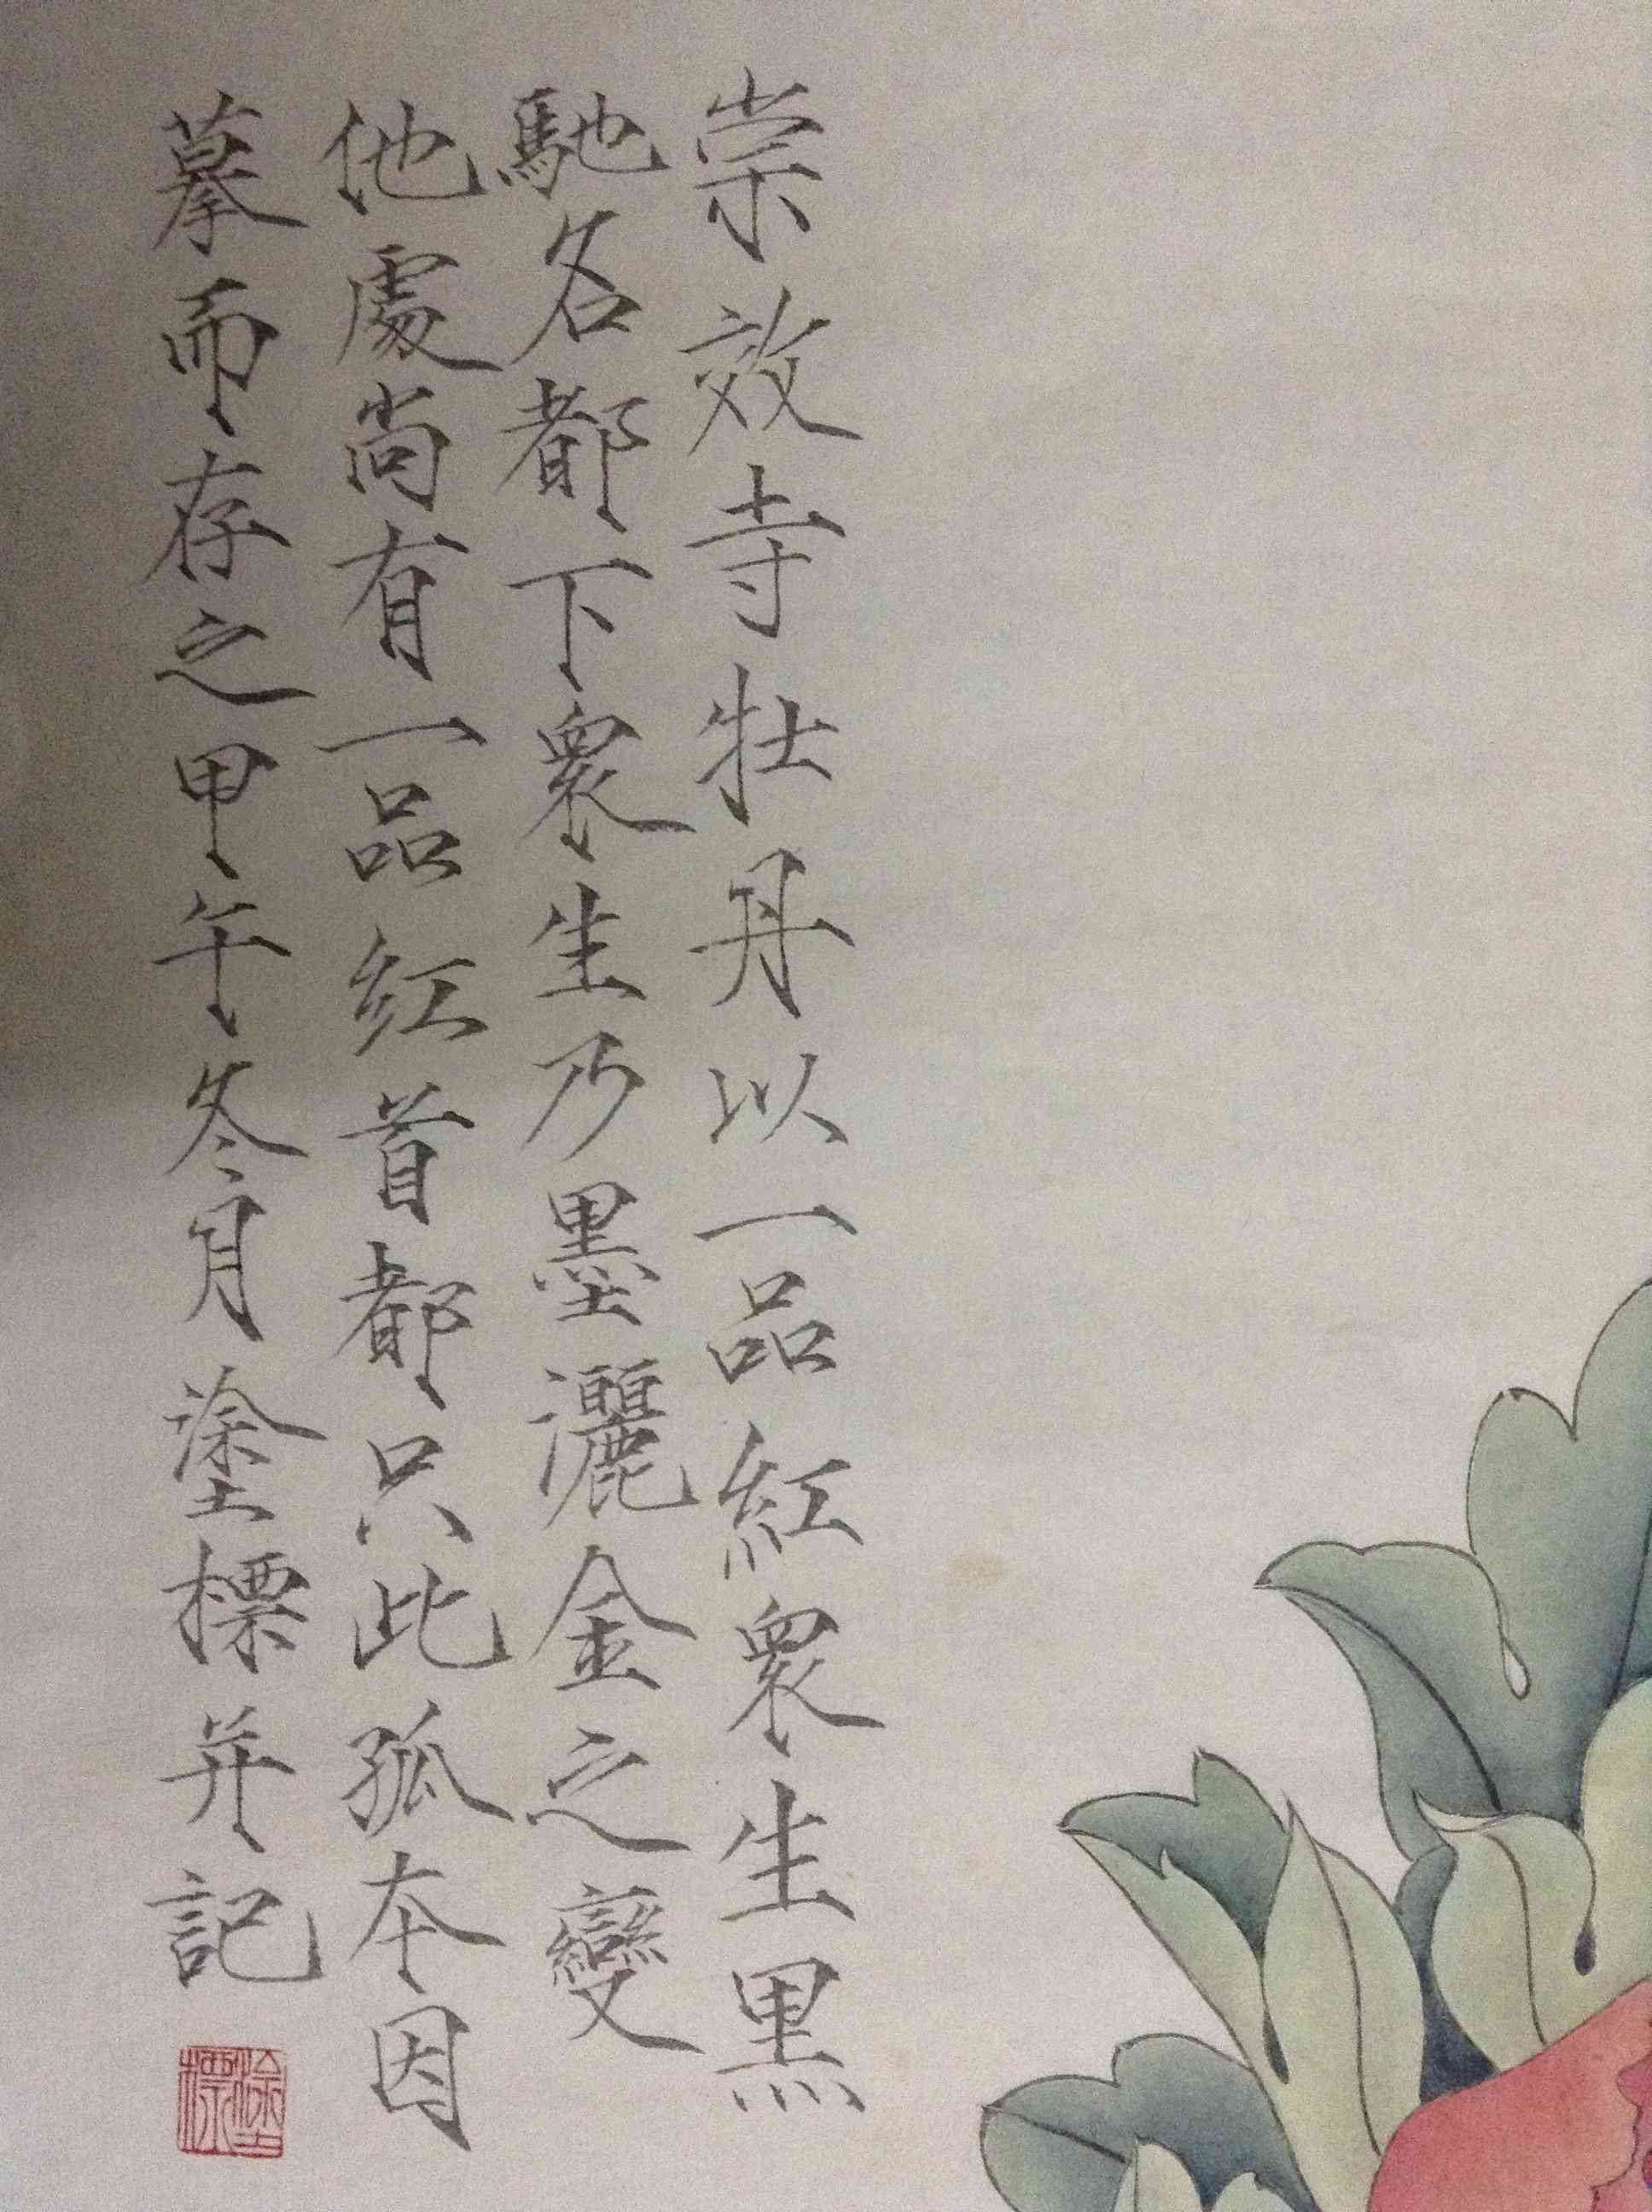 崇效寺牡丹以一品紅衆生黑
馳名都下衆生乃墨灑金之變
他處尚有一品紅首都只此孤本因
摹而存之甲午冬月塗標并記
塗標